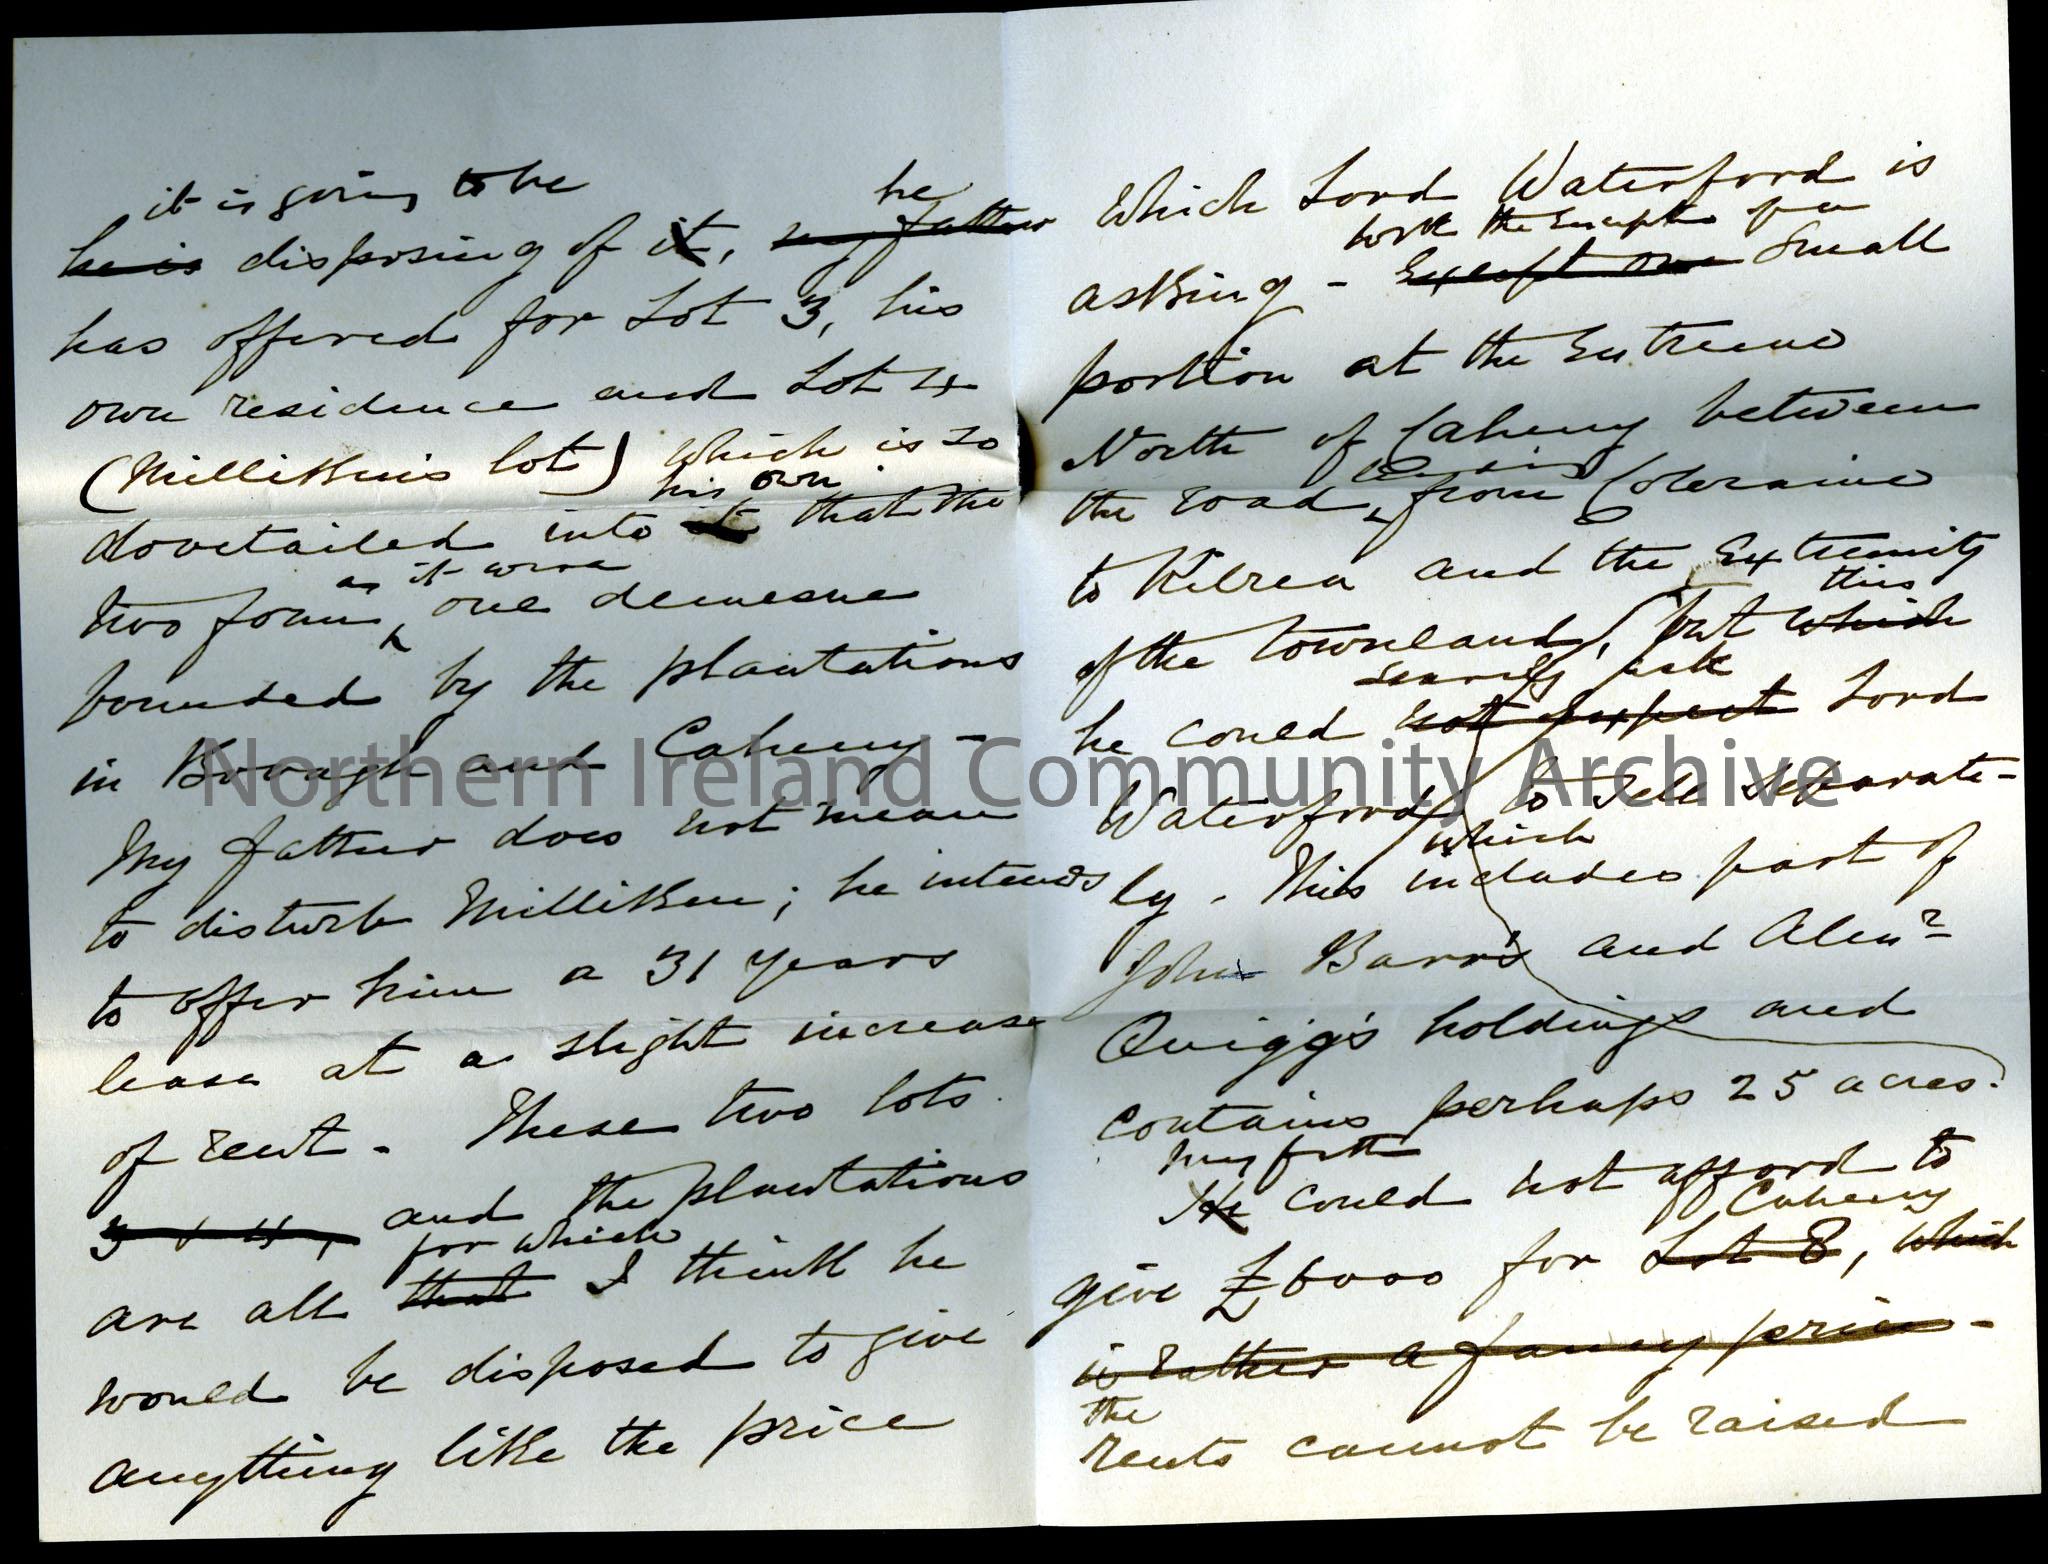 it is going to be he
he is disposing of it, my father
has offered for Lot 3, his
own residence and Lot 4
(Millikin's lot) which is so
his own
dovetailed into it that the
as it were
two form one demesne
bounded by the plantations
in Bovagh and Caheny -
My father does not mean
to disturb Milliken; he intends
to offer him a 31 years
lease at a slight increase
of rent - These two lots
3 & 4, and the plantations
for which
are all that I think he
would be disposed to give
anything like the price
which Lord Waterford is
with the exceptn of a
asking - Except one small
portion at the Extreme
North of Caheny between
the road from Coleraine
to Kilrea and the Extremity
this
of the townland, but which
scarcely ask
he could not expect Lord
Waterford to sell separate-
which
ly. This includes part of
John Barr's and Alexr
Quigg's holdings and
contains perhaps 25 acres.
my fath
He could not afford to
Caheny
give £6000 for Lot 8, which
is rather a fancy price -
the
rents cannot be raised
Northern Ireland Community Archive